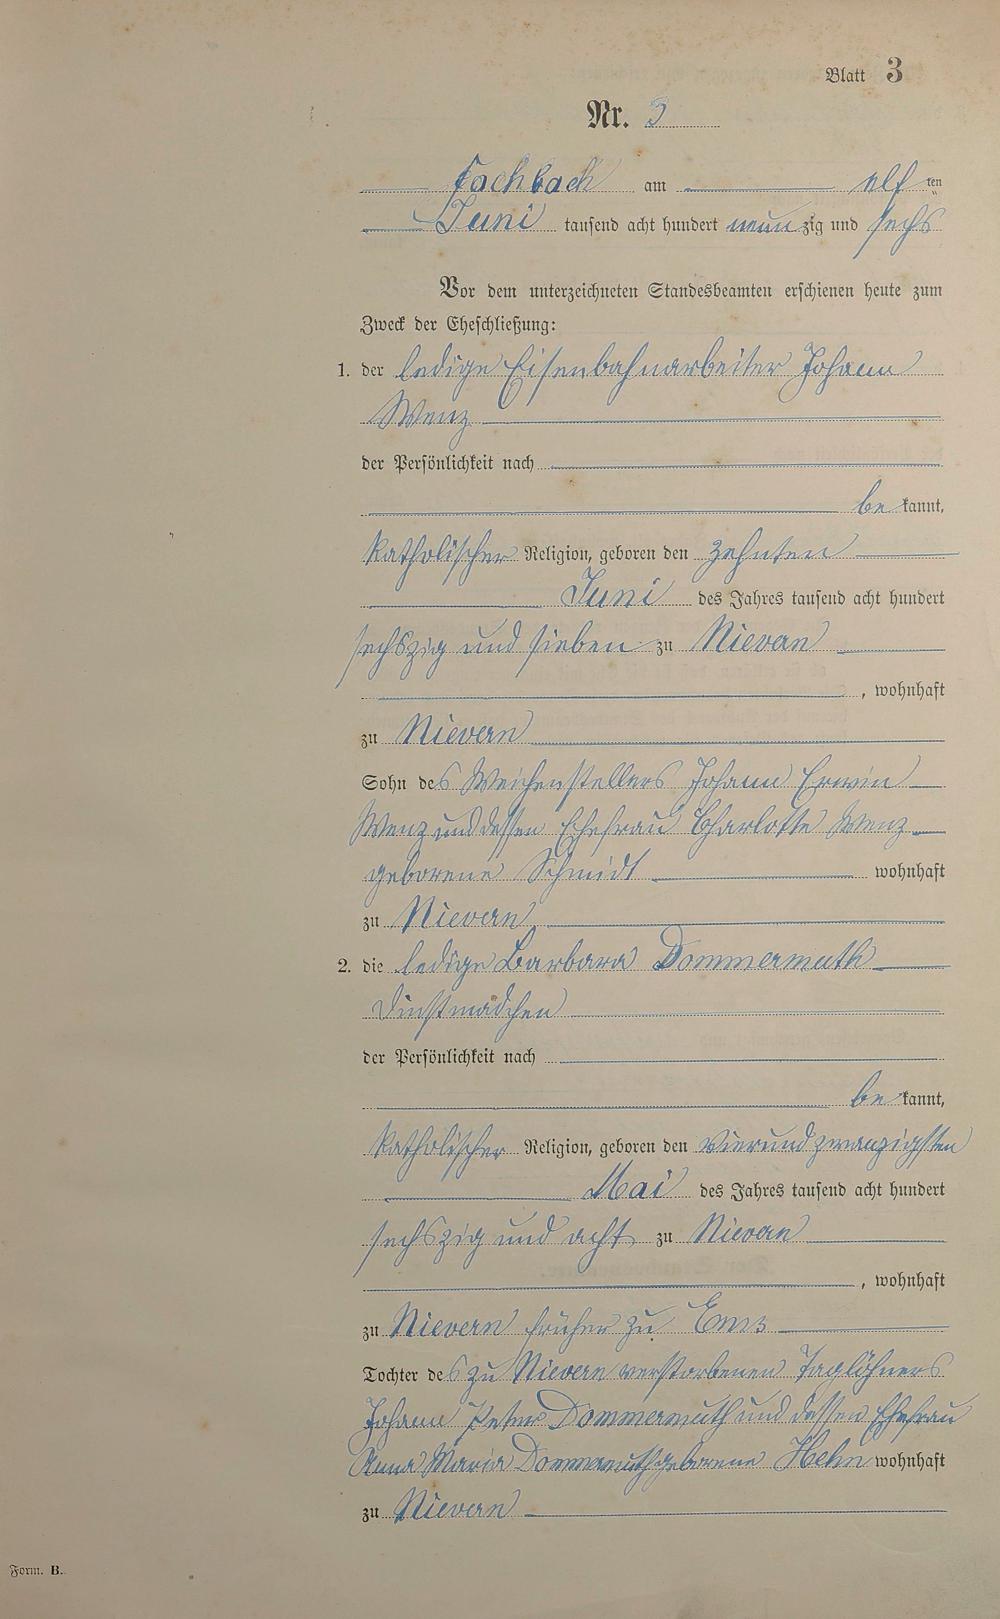 Blatt 3
Nr. 3
Fachbach am elf ten
Juni tausend acht hundert neunzig und sechs
Vor dem unterzeichneten Standesbeamten erschienen heute zum
Zweck der Eheschließung:
1. der ledige Eisenbahnarbeiter Johann
Wenz
der Persönlichkeit nach
be kannt,
katholischer Religion, geboren den zehnten
Juni des Jahres tausend acht hundert
sechszig und sieben zu Nievern
, wohnhaft
zu Nievern
Sohn des Weichenstellers Johann Erwin
Wenz und dessen Ehefrau Charlotte Wenz
geborene Schmidt wohnhaft
zu Nievern
2. die ledige Barbara Dommermuth
Dinstmädchen
der Persönlichkeit nach
be kannt,
katholischer Religion, geboren den vierundzwanzigsten
Mai des Jahres tausend acht hundert
sechszig und acht zu Nievern
, wohnhaft
zu Nievern früher zu Ems
Tochter des zu Nievern verstorbenen Taglöhners
Johann Peter Dommermuth und dessen Ehefrau
Anna Maria Dommermuth geborene Hehn wohnhaft
zu Nievern
Form. B.